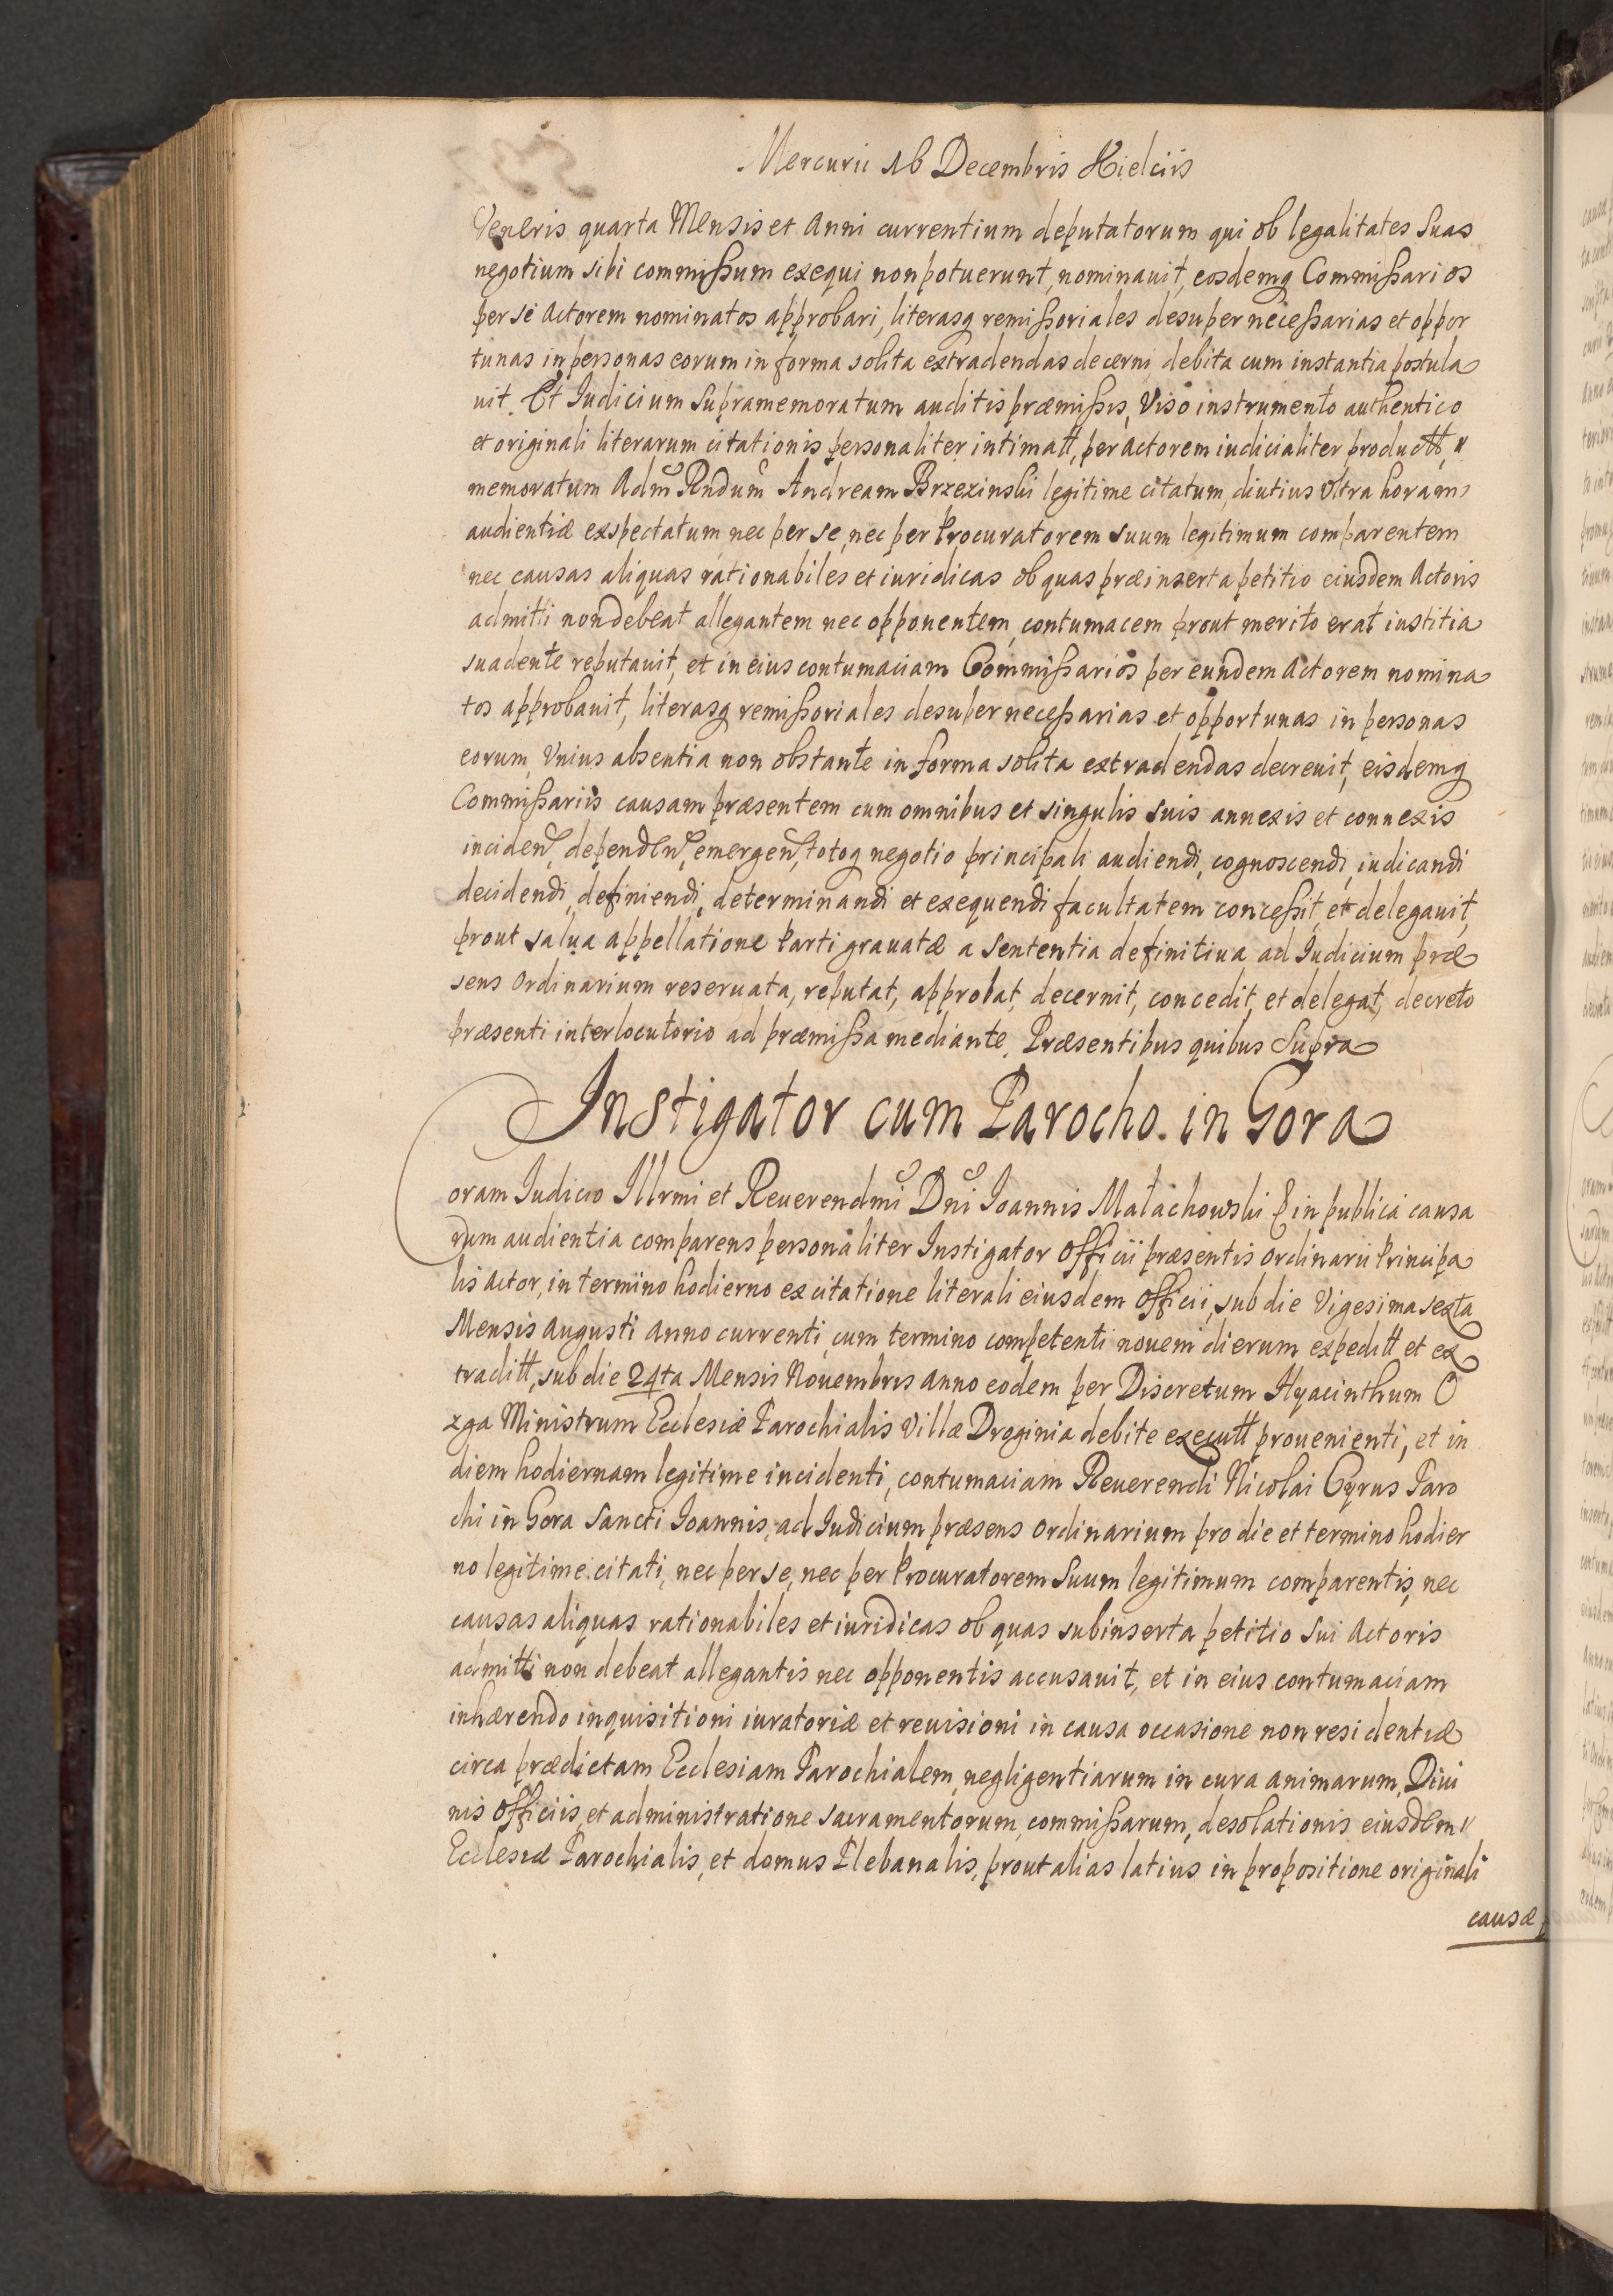 Mercurii 16 Decembris Kielciis
Veneris quarta Mensis et Anni currentium deputatorum qui ob legalitates Suas
negotium sibi commißum exequi non potuerunt, nominauit, eosdemq Commißarios
per se Actorem nominatos approbari, literasq remißoriales desuper neceßarias et oppor
tunas in personas eorum in forma solita extradendas decerni debita cum instantia postula
uit. Et Iudicium Supramemoratum auditis præmißis, Viso instrumento authentico
et originali literarum citationis personaliter intimatt, per Actorem iudicialiter productt,
memoratum Adm Rndum Andream Brzezinski legitime citatum, diutius Vltra horam
audientiæ exspectatum, nec per se, nec per Procuratorem suum legitimum comparentem
nec causas aliquas rationabiles et iuridicas ob quas præinserta petitio eiusdem Actoris
admitti non debeat allegantem nec opponentem, contumacem prout merito erat iustitia
suadente reputauit, et in eius contumaciam Commißarios per eundem Actorem nomina
tos approbauit, literasq remißoriales desuper neceßarias et opportunas in personas
eorum, Vnius absentia non obstante in forma solita extradendas decreuit, eisdemq
Commißariis causam præsentem cum omnibus et singulis suis annexis et connexis
inciden, dependen, emergen, totoq negotio principali audiendi, cognoscendi, iudicandi
decidendi, definiendi, determinandi et exequendi facultatem conceßit, et delegauit,
prout salua appellatione Parti grauatæ a Sententia definitiua ad Iudicium præ
sens Ordinarium reseruata, reputat, approbat, decernit, concedit, et delegat, decreto
præsenti interlocutorio ad præmißa mediante. Præsentibus quibus Supra
Instigator cum Parocho in Gora
Coram Iudicio Illrmi et Reuerendmi Dni Ioannis Małachowski &c in publica causa
rum audientia comparens personaliter Instigator Officii præsentis Ordinarii Principa
lis Actor, in termino hodierno ex citatione literali eiusdem Officii, sub die Vigesima sexta
Mensis Augusti Anno currenti, cum termino competenti nouem dierum expeditt et ex
traditt, sub die 24ta Mensis Nouembris Anno eodem per Discretum Hyacinthum O
zga Ministrum Ecclesiæ Parochialis Villæ Droginia debite executt prouenienti, et in
diem hodiernam legitime incidenti, contumaciam Reuerendi Nicolai Cyrus Paro
chi in Gora Sancti Ioannis, ad Iudicium præsens Ordinarium pro die et termino hodier
no legitime citati, nec per se, nec per Procuratorem Suum legitimum comparentis, nec
causas aliquas rationabiles et iuridicas ob quas subinserta petitio Sui Actoris
admitti non debeat allegantis nec opponentis accusauit, et in eius contumaciam
inhærendo inquisitioni iuratoriæ et reuisioni in causa occasione non residentiæ
circa prædictam Ecclesiam Parochialem, negligentiarum in cura animarum, Diui
nis Officiis, et administratione sacramentorum, commißarum, desolationis eiusdem
Ecclesiæ Parochialis, et domus Plebanalis, prout alias latius in propositione originali
causæ